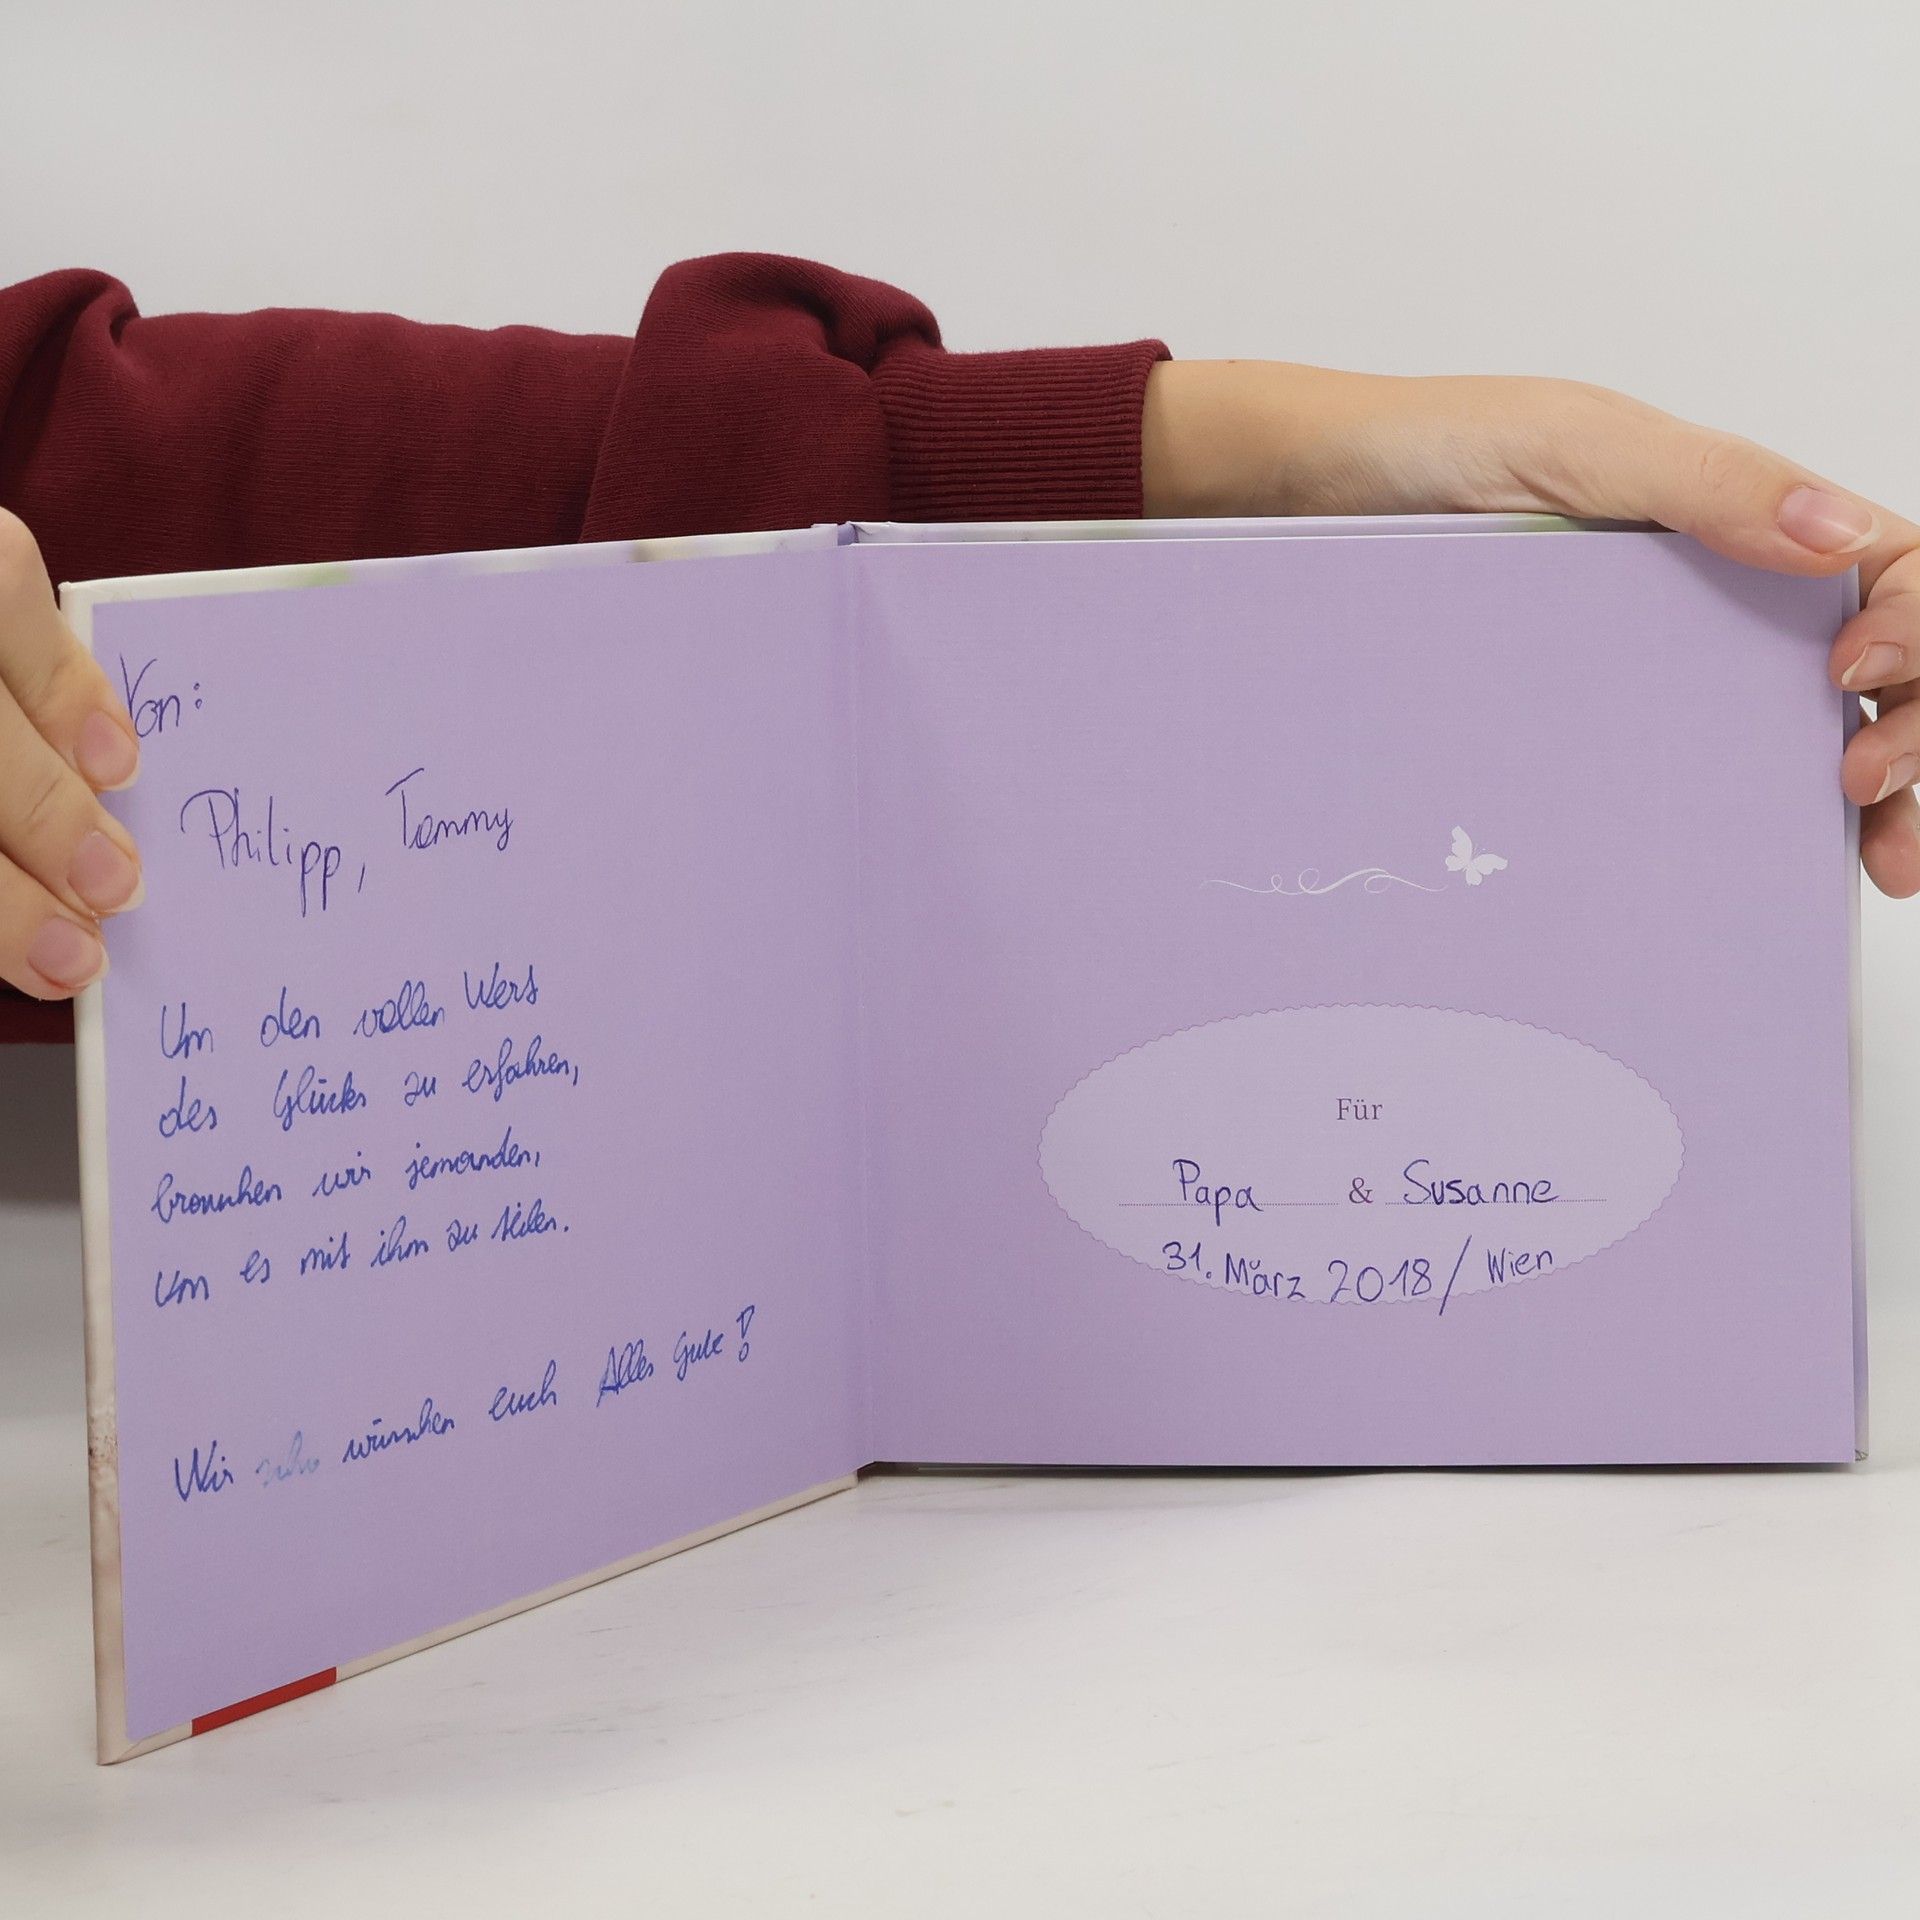 Von:
Philipp, Tommy
Um den vollen Wert
des Glücks zu erfahren,
brauchen wir jemanden,
um es mit ihm zu teilen.
Wir wünschen euch Alles Gute!
Für
Papa & Susanne
31. März 2018 / Wien